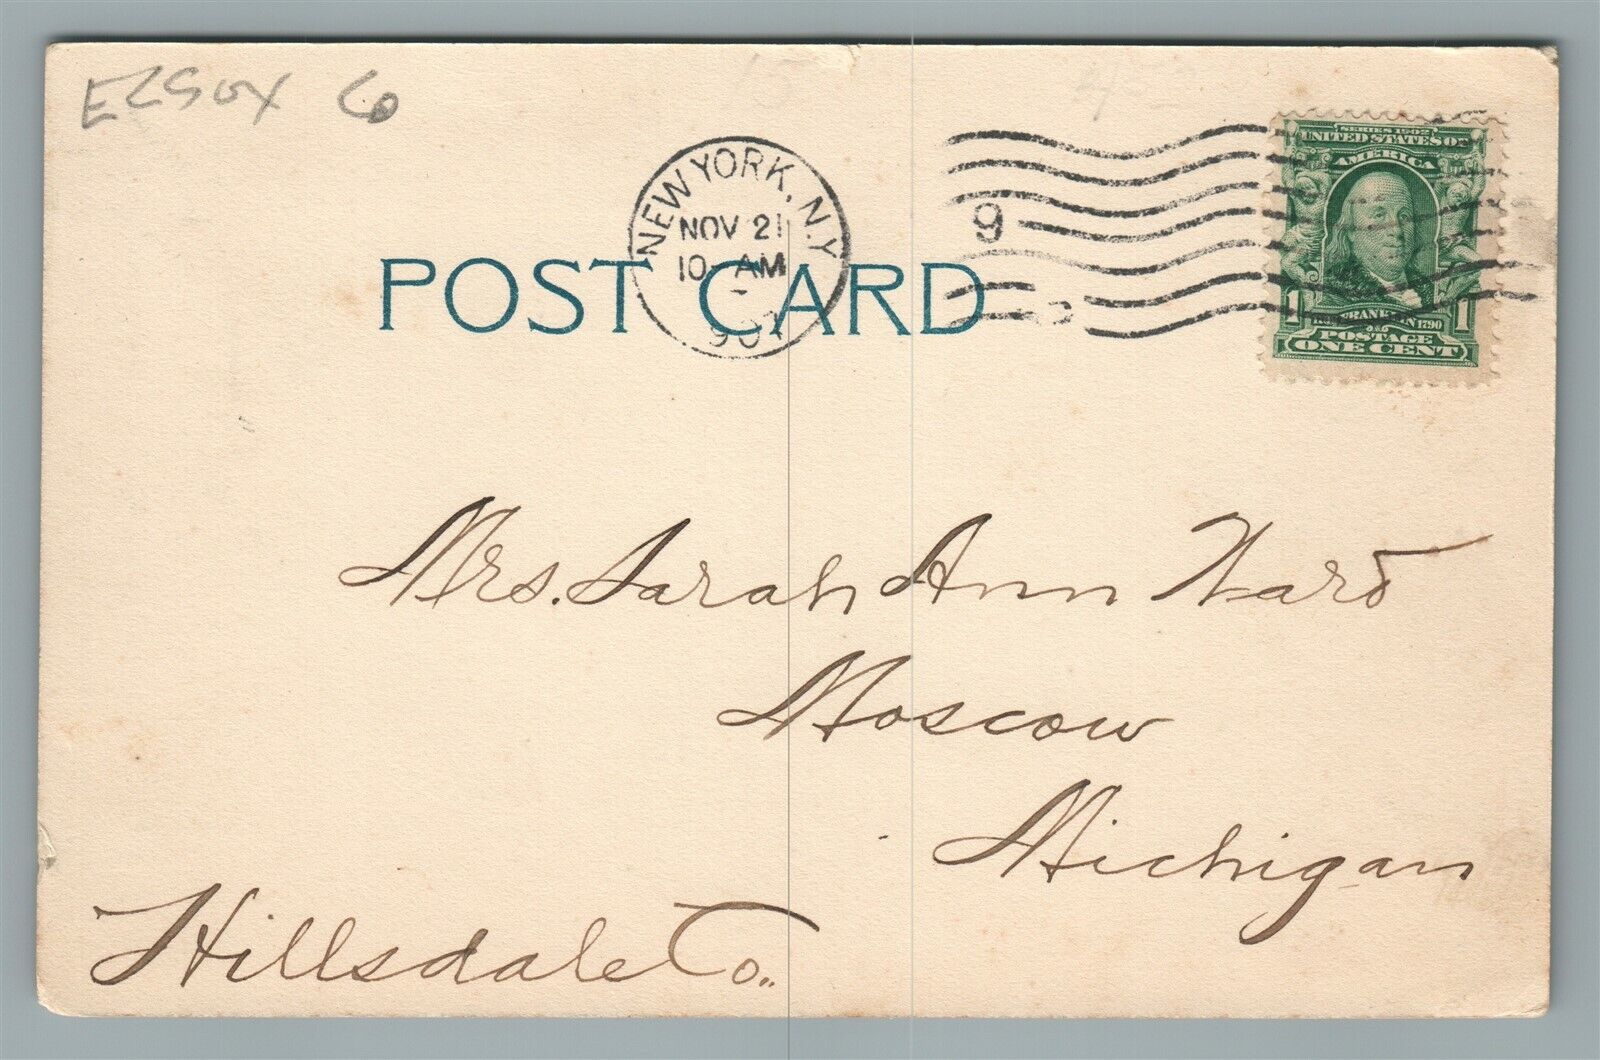 EZSOX 6
NEW YORK, N.Y.
NOV 21
10 AM
1907
9
POST CARD
SERIES 1902
UNITED STATES OF
AMERICA
1 FRANKLIN 1790 1
POSTAGE
ONE CENT
Mrs. Sarah Ann Ward
Moscow
Michigan
Hillsdale Co.